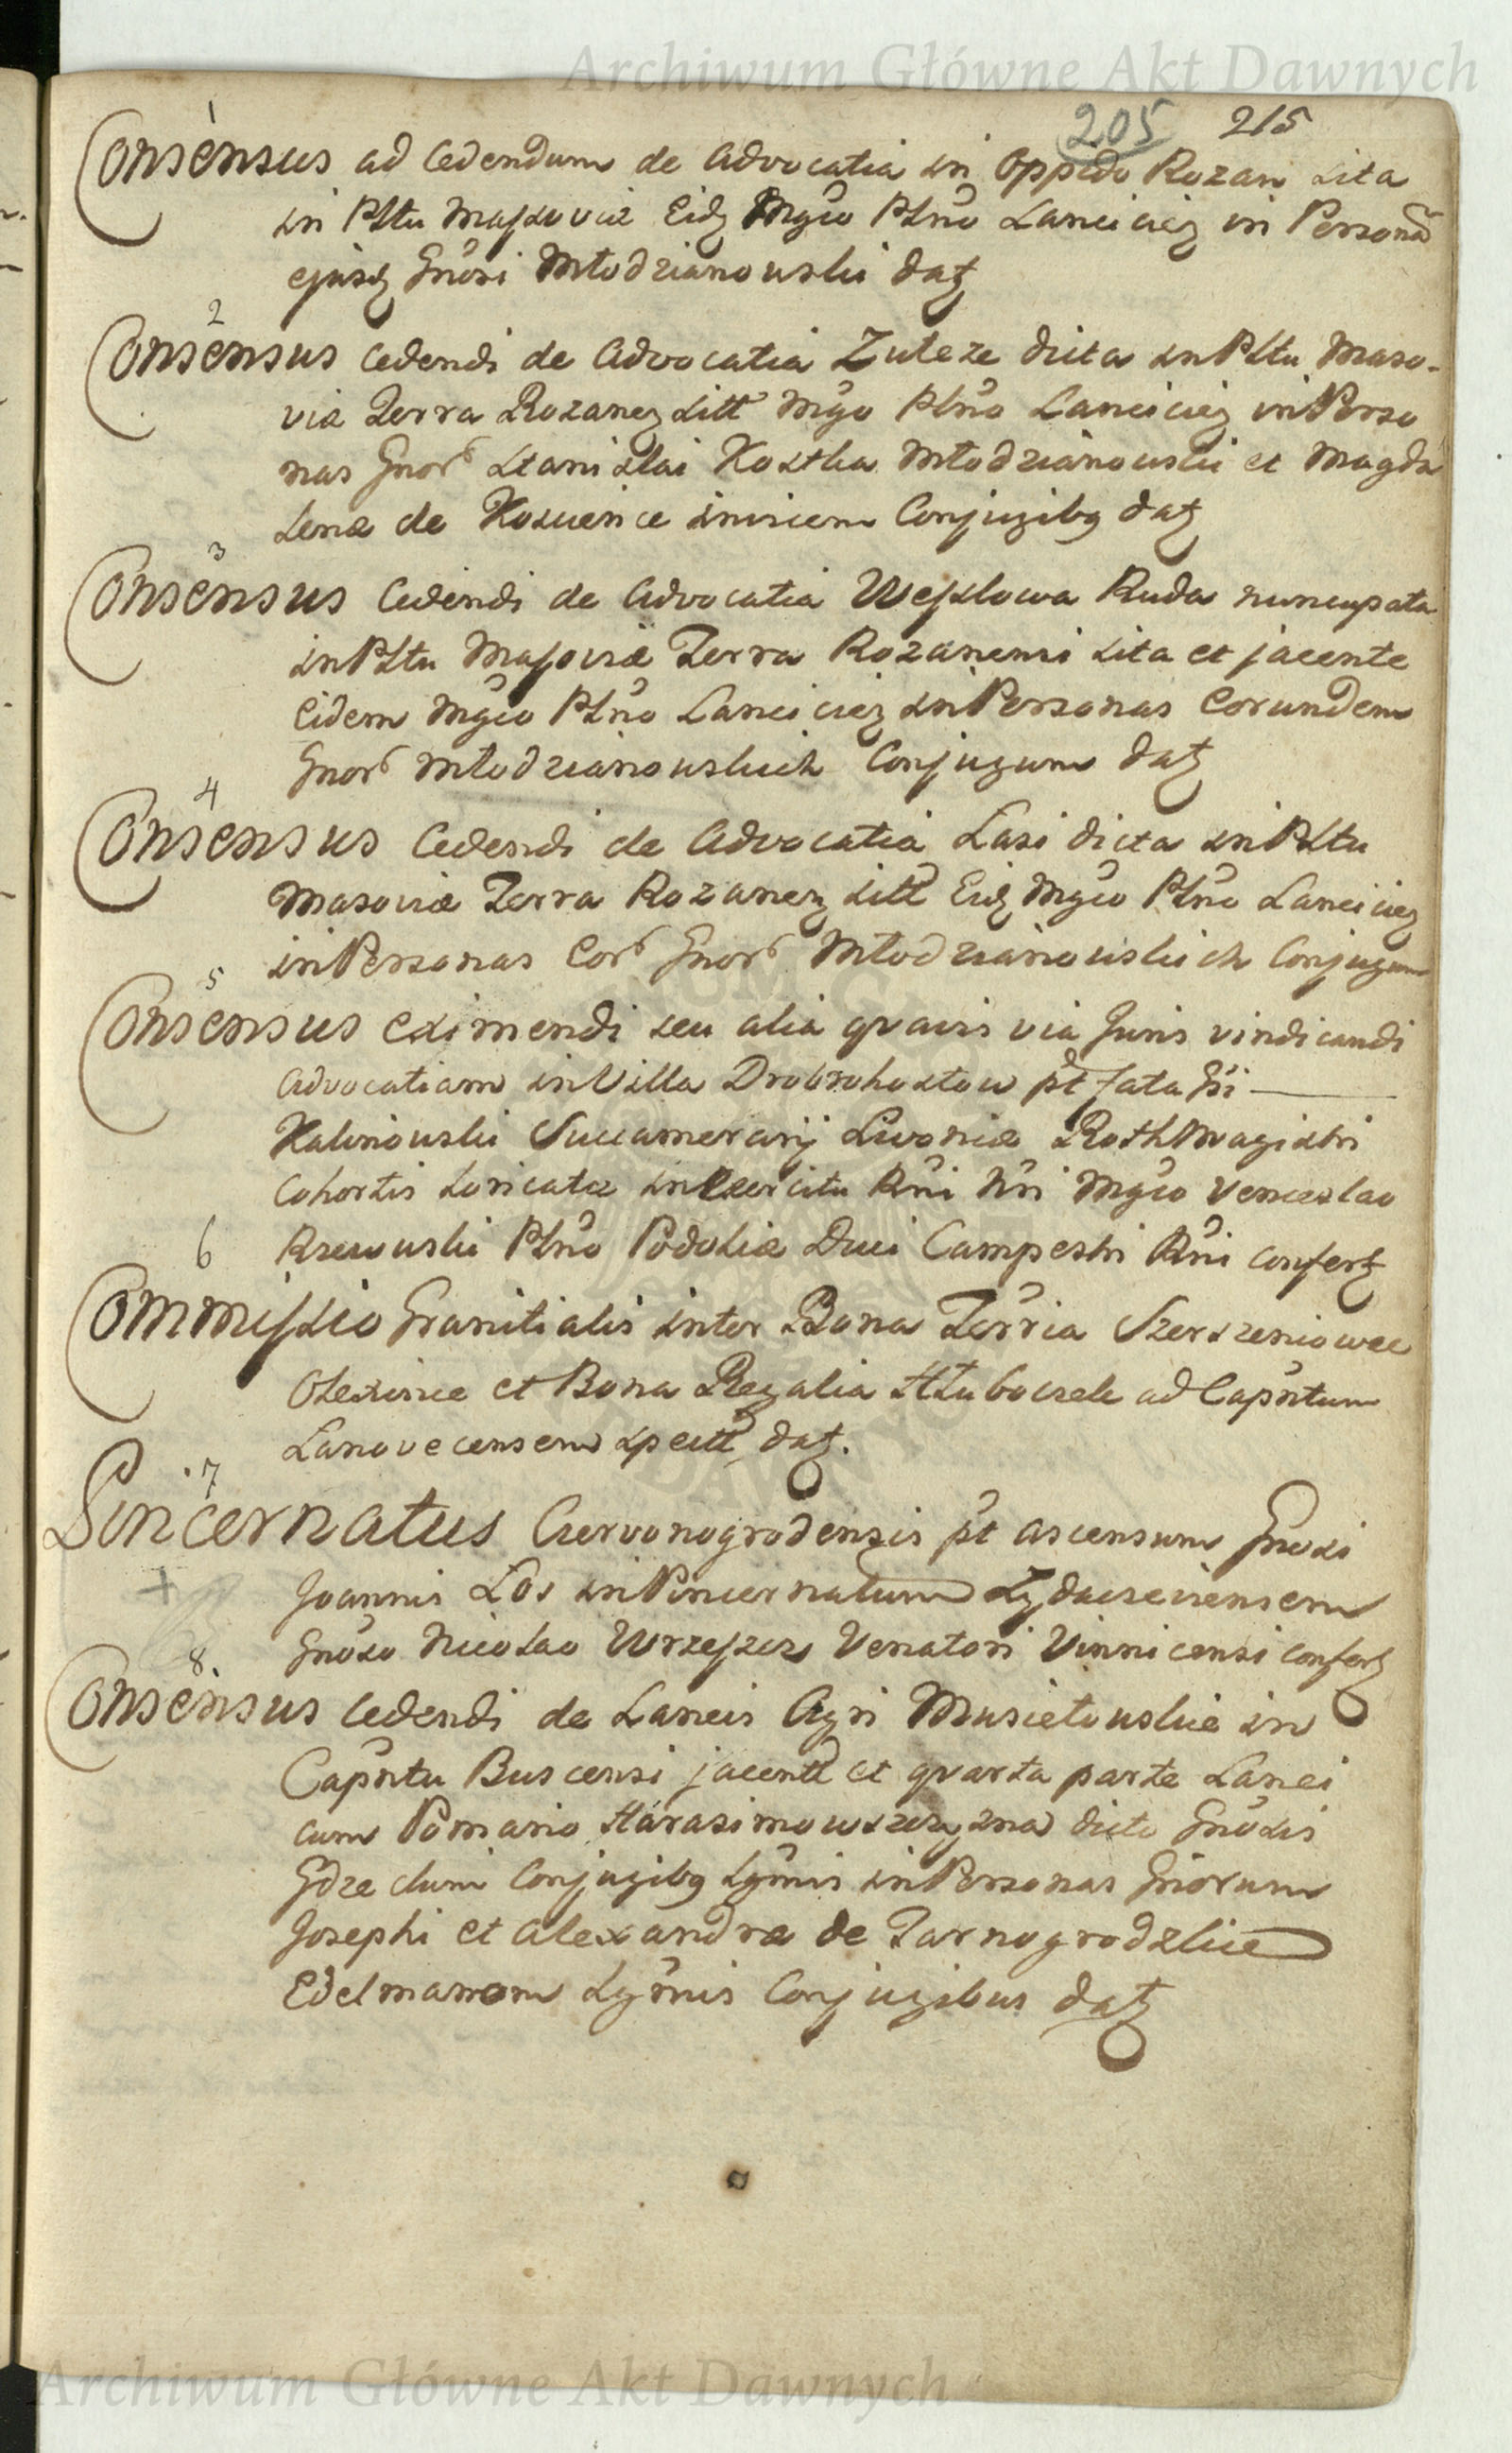 Archiwum Główne Akt Dawnych
205 215
1
Consensus ad cedendum de Advocatia in Oppido Rozan sita
in Pltu Massoviæ Eidz Mgco Pltno Lanciciez in Personã
ejusdz Gnosi Młodzianowski datz
2
Consensus cedendi de Advocatia Zuteze dicta in Pltu Maso-
viæ Terra Rozanez sitt Mgco Pltno Lanciciez in Perso
nas Gnor Stanislai Kostka Młodzianowski et Magda
lenæ de Kosienice invicem Conjugibq datz
3
Consensus Cedendi de Advocatia Wesslowa Ruda nuncupata
in Pltu Massoviæ Terra Rozanensi sita et jacente
Eidem Mgco Pltno Lanciciez in Personas Eorundem
Gnor Młodzianowskich Conjugum datz
4
Consensus Cedendi de Advocatia Lasi dicta in Pltu
Masoviæ Terra Rozanez sitt Eidz Mgco Pltno Lanciciez
in Personas Eor Gnor Młodzianowskich Conjugum
5
Consensus eximendi seu alia qvavis via Juris vindicandi
Advocatiam in Villa Drobrohostow pt fata Gsi
Kalinowski Succamerarij Livoniæ Rothmagistri
Cohortis Loricatæ in Exercitu Rni Nri Mgco Venceslao
Rzewuski Pltno Podoliæ Duci Campestri Rni confertz
6
Commissio Granitialis inter Bona Terria Szerszeniowce
Olexince et Bona Regalia Hłuboczek ad Capntum
Lanovecensem spectt datz.
7
Pincernatus Czervonogrodensis pt ascensum Gnosi
Joannis Łos in Pincernatum Zydaczeviensem
Gnoso Nicolao Wrzeszcz Venatori Vinnicensi confertz
8.
Consensus cedendi de Laneis Agri Musietowskie in
Capntu Buscensi jacentt et qvarta parte Lanei
cum Pomario Harasimowszczyzna dicto Gnosis
Conjugibq Lgmis in Personas Gnorum
Josephi et Alexandræ de Tarnogrodzkie
Edelmanom Lgmis Conjugibus datz
Archiwum Główne Akt Dawnych